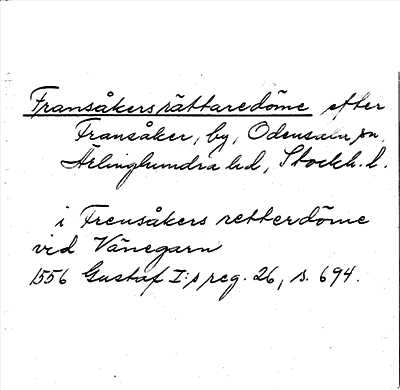 Fransåkers rättaredöme efter
Fransåker, by, Odensala sn,
Ärlinghundra hd, Stockh. l.
i Frensåkers retterdöme
ved Vänegarn
1556 Gustaf I:s reg. 26, s. 694.